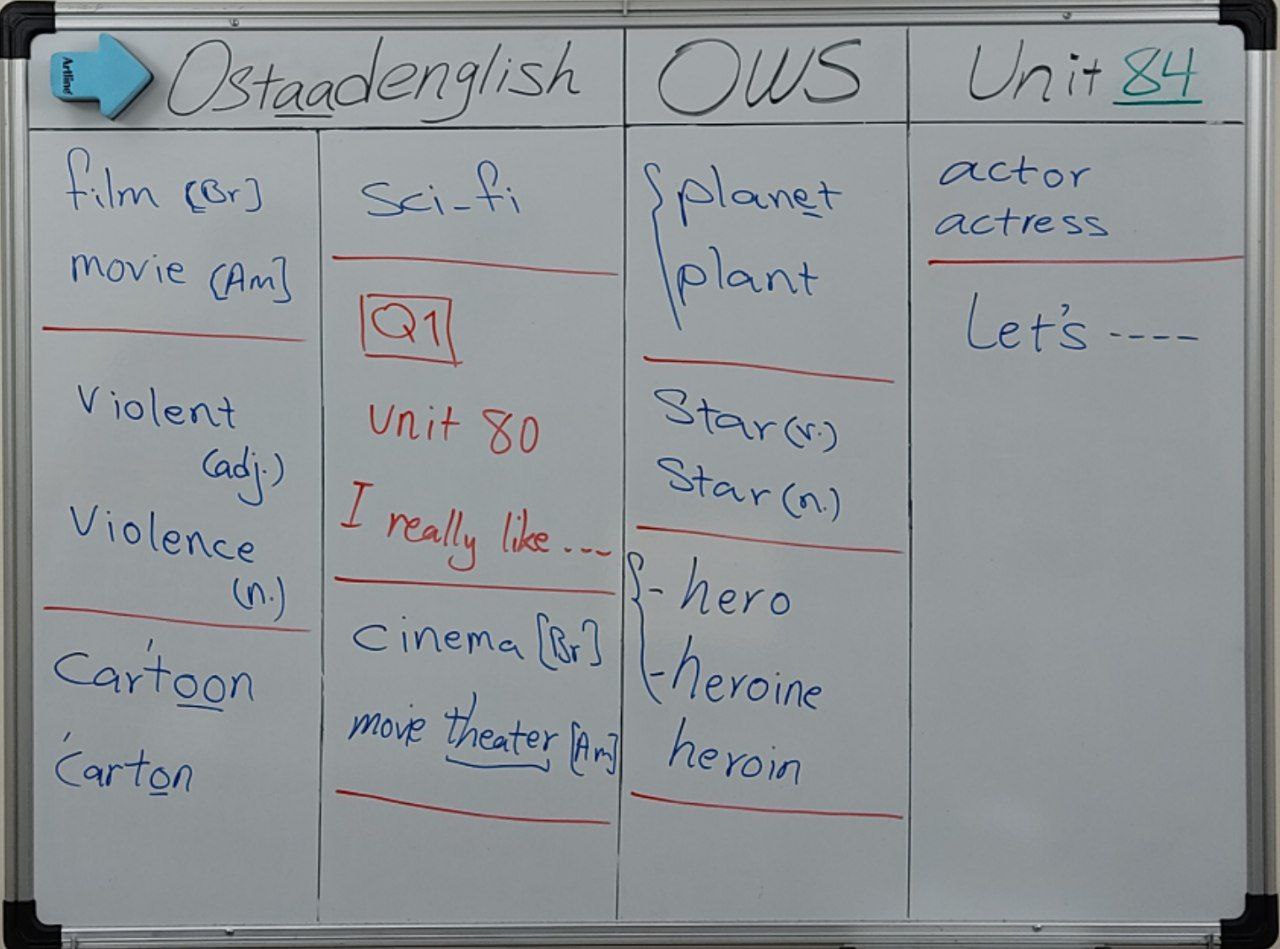 Artline
Ostaadenglish
OWS
Unit 84
film [Br]
movie [Am]
Violent
(adj.)
Violence
(n.)
Car'toon
'Carton
Sci-fi
Q1
Unit 80
I really like ...
Cinema [Br]
movie theater [Am]
planet
plant
Star (v.)
Star (n.)
- hero
- heroine
heroin
actor
actress
Let's ----